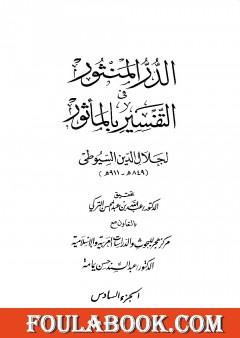 الدر المنثور
في
التفسير بالمأثور
لجلال الدين السيوطي
(٨٤٩هـ - ٩١١هـ)
تحقيق
الدكتور عبدالله بن عبدالمحسن التركي
بالتعاون مع
مركز هجر للبحوث والدراسات العربية والإسلامية
الدكتور عبدالسند حسن يمامة
الجزء السادس
FOULABOOK.COM